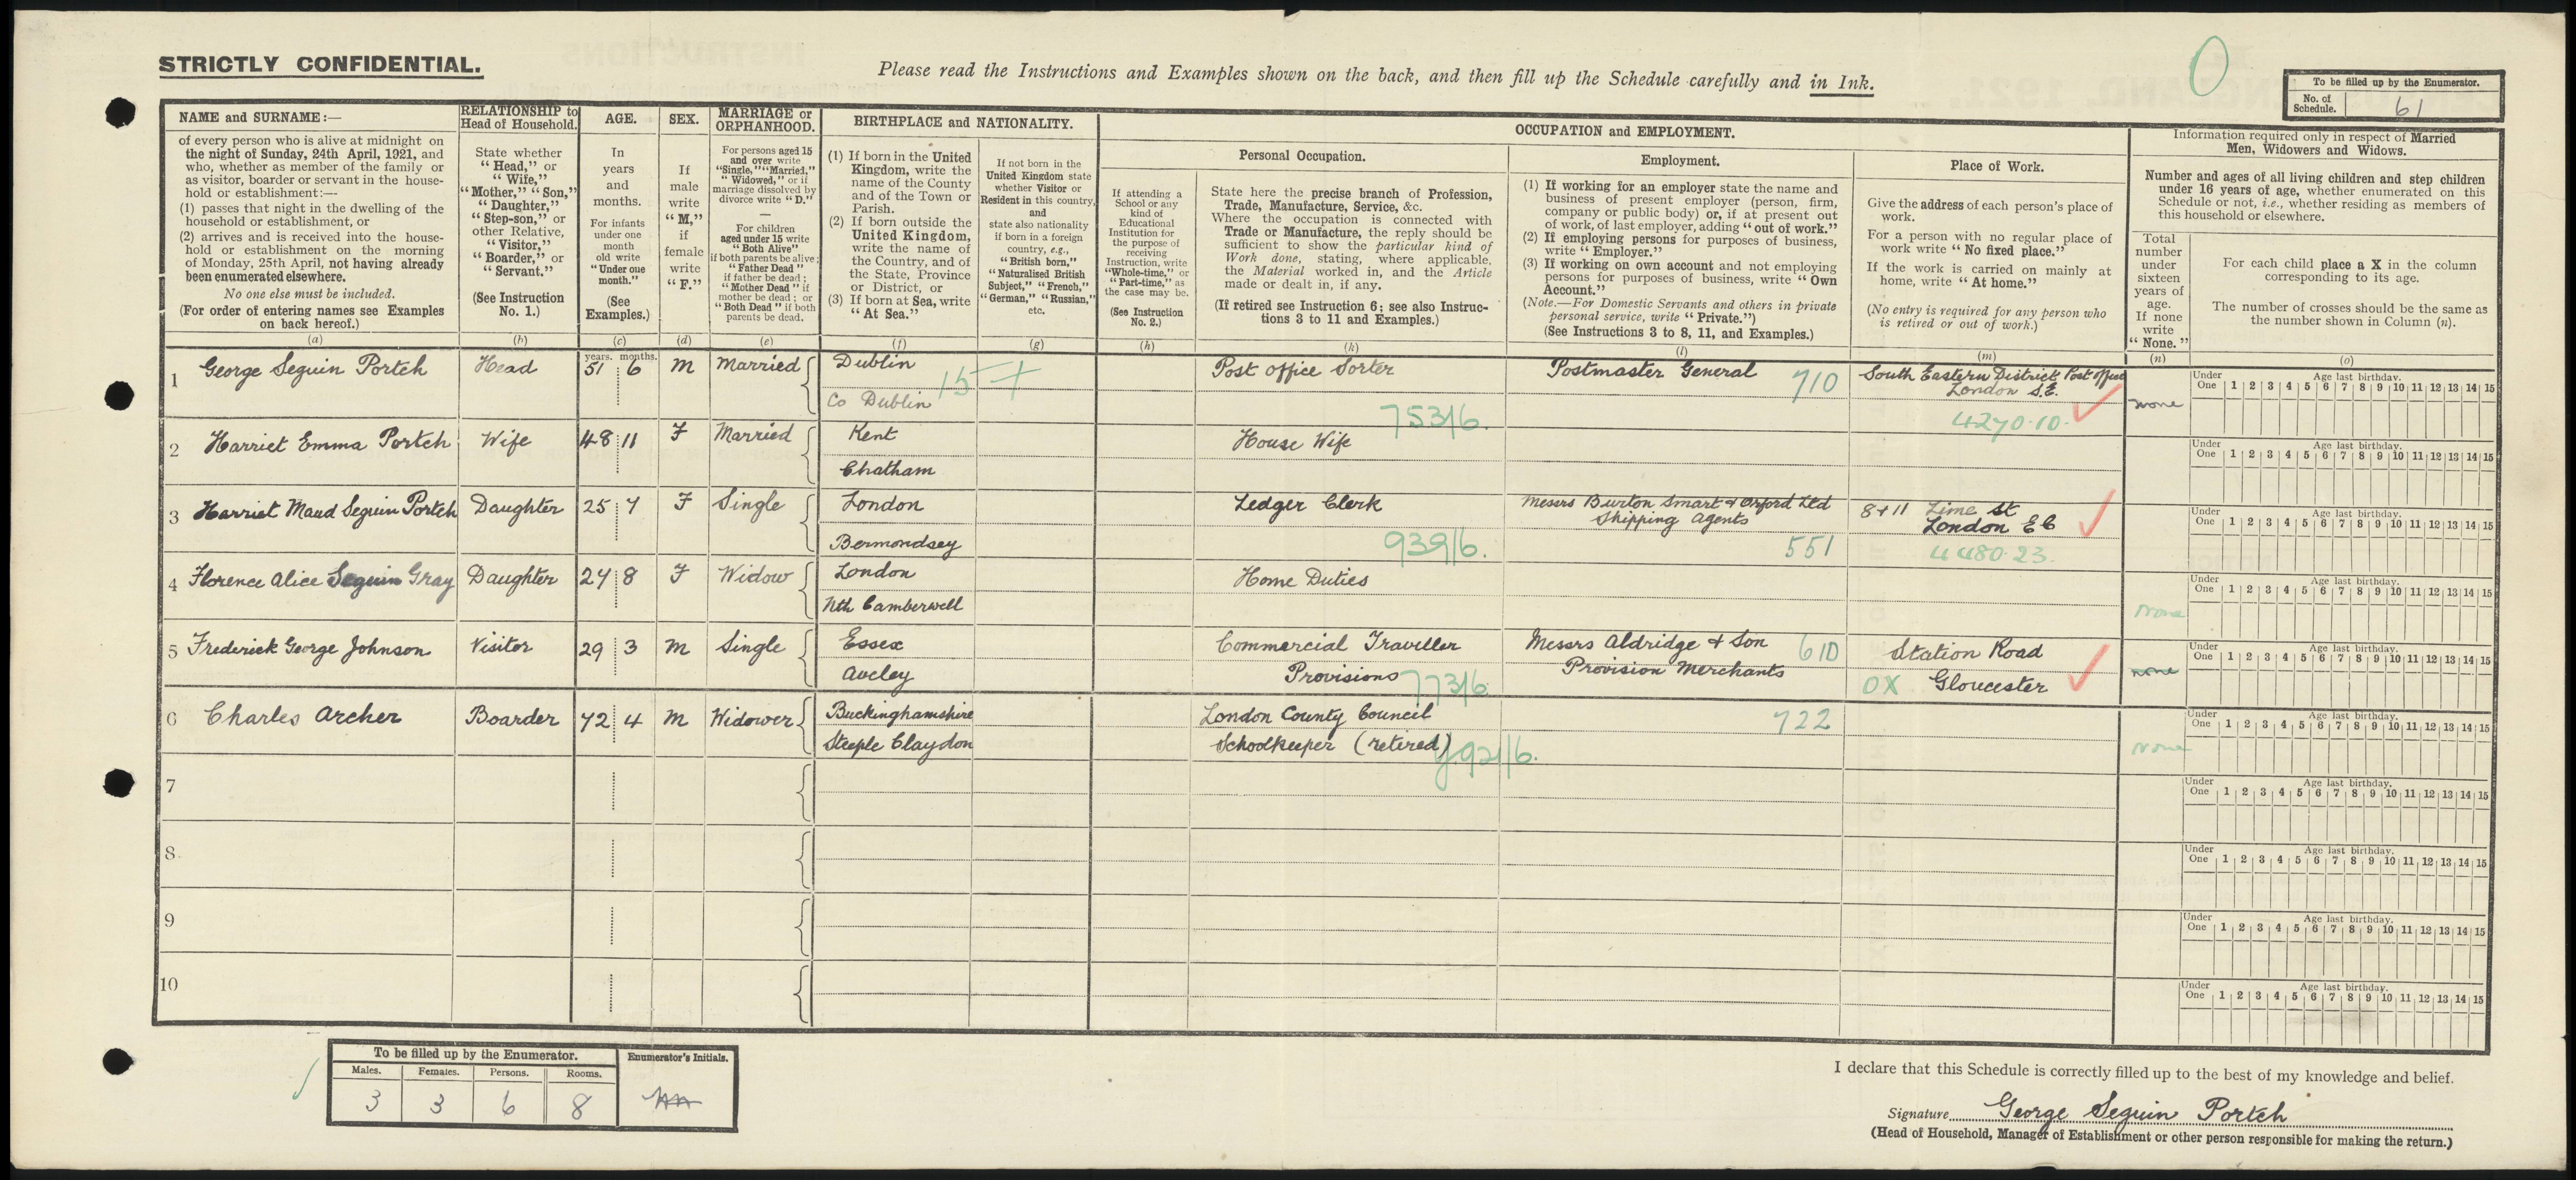 STRICTLY CONFIDENTIAL.
Please read the Instructions and Examples shown on the back, and then fill up the Schedule carefully and in Ink.
0
To be filled up by the Enumerator.
No. of Schedule. 61
NAME and SURNAME :—
of every person who is alive at midnight on
the night of Sunday, 24th April, 1921, and
who, whether as member of the family or
as visitor, boarder or servant in the house-
hold or establishment :—
(1) passes that night in the dwelling of the
household or establishment, or
(2) arrives and is received into the house-
hold or establishment on the morning
of Monday, 25th April, not having already
been enumerated elsewhere.
No one else must be included.
(For order of entering names see Examples
on back hereof.)
(a)
RELATIONSHIP to
Head of Household.
State whether
"Head," or
"Wife,"
"Mother," "Son,"
"Daughter,"
"Step-son," or
other Relative,
"Visitor,"
"Boarder," or
"Servant."
(See Instruction
No. 1.)
(b)
AGE.
In
years
and
months.
For infants
under one
month
old write
"Under one
month."
(See
Examples.)
(c)
years. months.
SEX.
If
male
write
"M,"
if
female
write
"F."
(d)
MARRIAGE or
ORPHANHOOD.
For persons aged 15
and over write
"Single," "Married,"
"Widowed," or if
marriage dissolved by
divorce write "D."
—
For children
aged under 15 write
"Both Alive"
if both parents be alive;
"Father Dead"
if father be dead;
"Mother Dead" if
mother be dead; or
"Both Dead" if both
parents be dead.
(e)
BIRTHPLACE and NATIONALITY.
(1) If born in the United
Kingdom, write the
name of the County
and of the Town or
Parish.
(2) If born outside the
United Kingdom,
write the name of
the Country, and of
the State, Province
or District, or
(3) If born at Sea, write
"At Sea."
(f)
If not born in the
United Kingdom state
whether Visitor or
Resident in this country,
and
state also nationality
if born in a foreign
country, e.g.,
"British born,"
"Naturalised British
Subject," "French,"
"German," "Russian,"
etc.
(g)
OCCUPATION and EMPLOYMENT.
Personal Occupation.
If attending a
School or any
kind of
Educational
Institution for
the purpose of
receiving
Instruction, write
"Whole-time," or
"Part-time," as
the case may be.
(See Instruction
No. 2.)
(h)
State here the precise branch of Profession,
Trade, Manufacture, Service, &c.
Where the occupation is connected with
Trade or Manufacture, the reply should be
sufficient to show the particular kind of
Work done, stating, where applicable,
the Material worked in, and the Article
made or dealt in, if any.
(If retired see Instruction 6; see also Instruc-
tions 3 to 11 and Examples.)
(k)
Employment.
(1) If working for an employer state the name and
business of present employer (person, firm,
company or public body) or, if at present out
of work, of last employer, adding "out of work."
(2) If employing persons for purposes of business,
write "Employer."
(3) If working on own account and not employing
persons for purposes of business, write "Own
Account."
(Note.—For Domestic Servants and others in private
personal service, write "Private.")
(See Instructions 3 to 8, 11, and Examples.)
(l)
Place of Work.
Give the address of each person's place of
work.
For a person with no regular place of
work write "No fixed place."
If the work is carried on mainly at
home, write "At home."
(No entry is required for any person who
is retired or out of work.)
(m)
Information required only in respect of Married
Men, Widowers and Widows.
Number and ages of all living children and step children
under 16 years of age, whether enumerated on this
Schedule or not, i.e., whether residing as members of
this household or elsewhere.
Total
number
under
sixteen
years of
age.
If none
write
"None."
(n)
For each child place a X in the column
corresponding to its age.
The number of crosses should be the same as
the number shown in Column (n).
(o)
1 George Seguin Portch Head 51 6 M Married Dublin Co Dublin 15 + Post office Sorter 753/6. Postmaster General 710 South Eastern District Post office London S.E. 4270.10. none
Under One Age last birthday. 1 2 3 4 5 6 7 8 9 10 11 12 13 14 15
2 Harriet Emma Portch Wife 48 11 F Married Kent Chatham House Wife
Under One Age last birthday. 1 2 3 4 5 6 7 8 9 10 11 12 13 14 15
3 Harriet Maud Seguin Portch Daughter 25 7 F Single London Bermondsey Ledger Clerk 939/6. Messrs Burton Smart & Orford Ltd Shipping Agents 551 8 + 11 Lime St London E C 4480.23.
Under One Age last birthday. 1 2 3 4 5 6 7 8 9 10 11 12 13 14 15
4 Florence Alice Seguin Gray Daughter 27 8 F Widow London Nth Camberwell Home Duties none
Under One Age last birthday. 1 2 3 4 5 6 7 8 9 10 11 12 13 14 15
5 Frederick George Johnson Visitor 29 3 M Single Essex Aveley Commercial Traveller Provisions 773/6 Messrs Aldridge & Son Provision Merchants 610 Station Road OX Gloucester none
Under One Age last birthday. 1 2 3 4 5 6 7 8 9 10 11 12 13 14 15
6 Charles Archer Boarder 72 4 M Widower Buckinghamshire Steeple Claydon London County Council Schoolkeeper (retired) 722 none
Under One Age last birthday. 1 2 3 4 5 6 7 8 9 10 11 12 13 14 15
7
Under One Age last birthday. 1 2 3 4 5 6 7 8 9 10 11 12 13 14 15
8
Under One Age last birthday. 1 2 3 4 5 6 7 8 9 10 11 12 13 14 15
9
Under One Age last birthday. 1 2 3 4 5 6 7 8 9 10 11 12 13 14 15
10
Under One Age last birthday. 1 2 3 4 5 6 7 8 9 10 11 12 13 14 15
To be filled up by the Enumerator.
Males. Females. Persons. Rooms.
3 3 6 8
Enumerator's Initials.
I declare that this Schedule is correctly filled up to the best of my knowledge and belief.
Signature George Seguin Portch
(Head of Household, Manager of Establishment or other person responsible for making the return.)